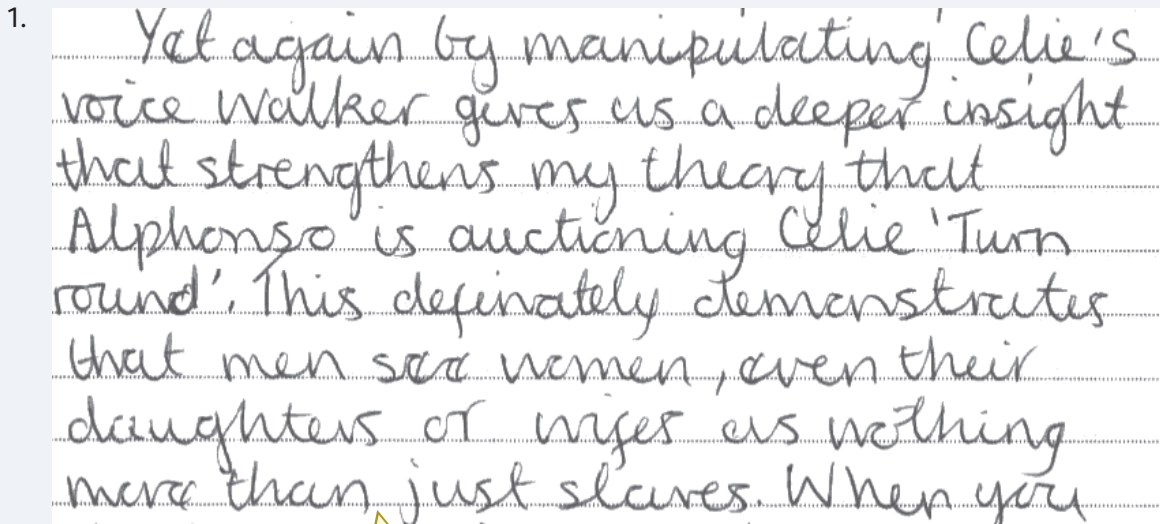 1.
Yet again by manipulating Celie's
voice Walker gives us a deeper insight
that strengthens my theory that
Alphonso is auctioning Celie 'Turn
round'. This definately demonstrates
that men see women, even their
daughters or wifes as nothing
more than just slaves. When you